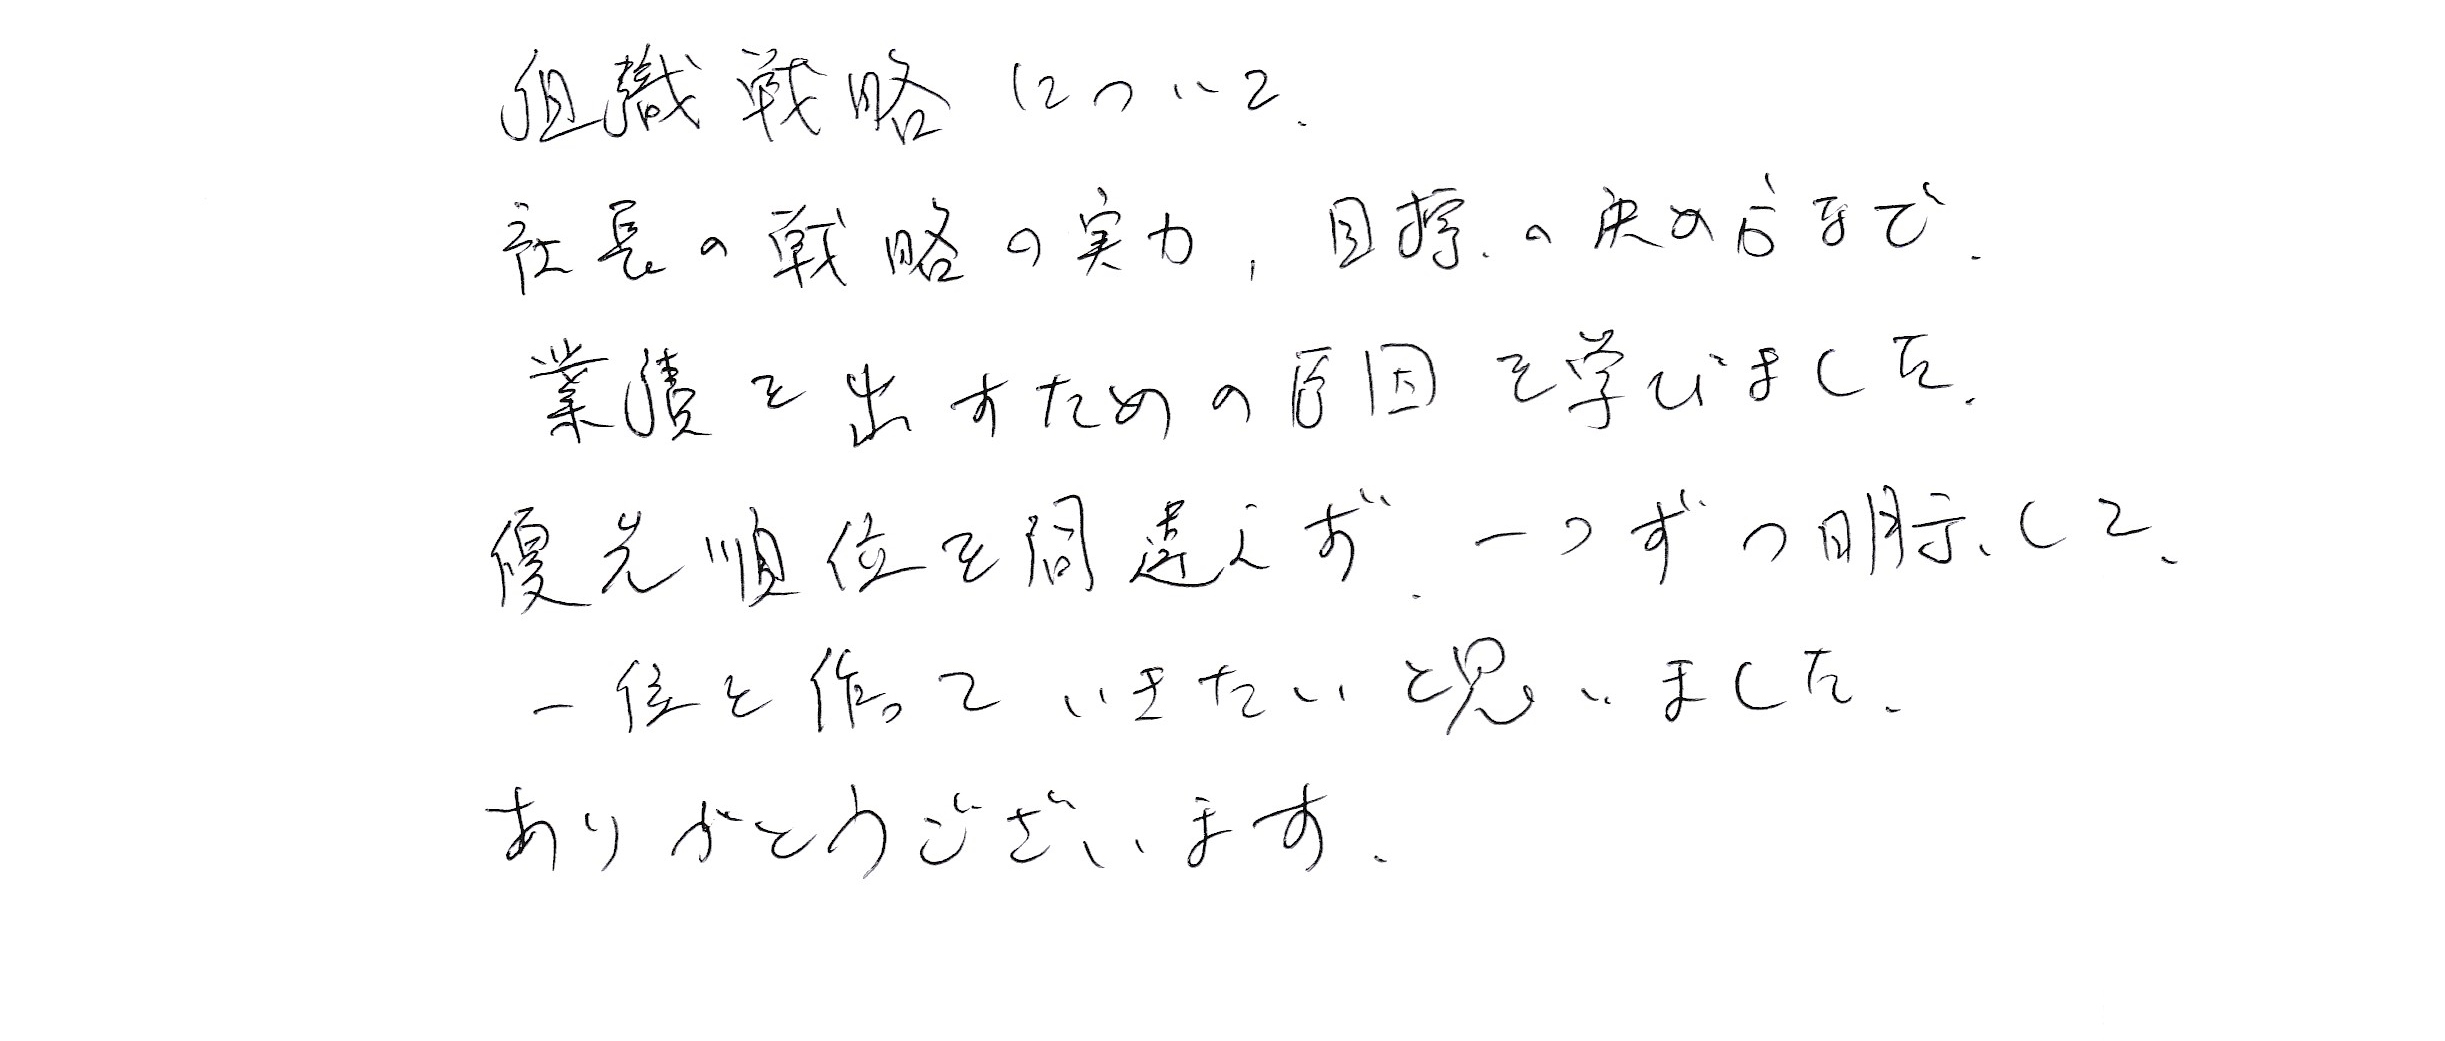 組織戦略について、
社長の戦略の実力、目標の決め方まで、
業績を出すための原因を学びました。
優先順位を間違えず、一つずつ明示して、
一位を作っていきたいと思いました。
ありがとうございます。